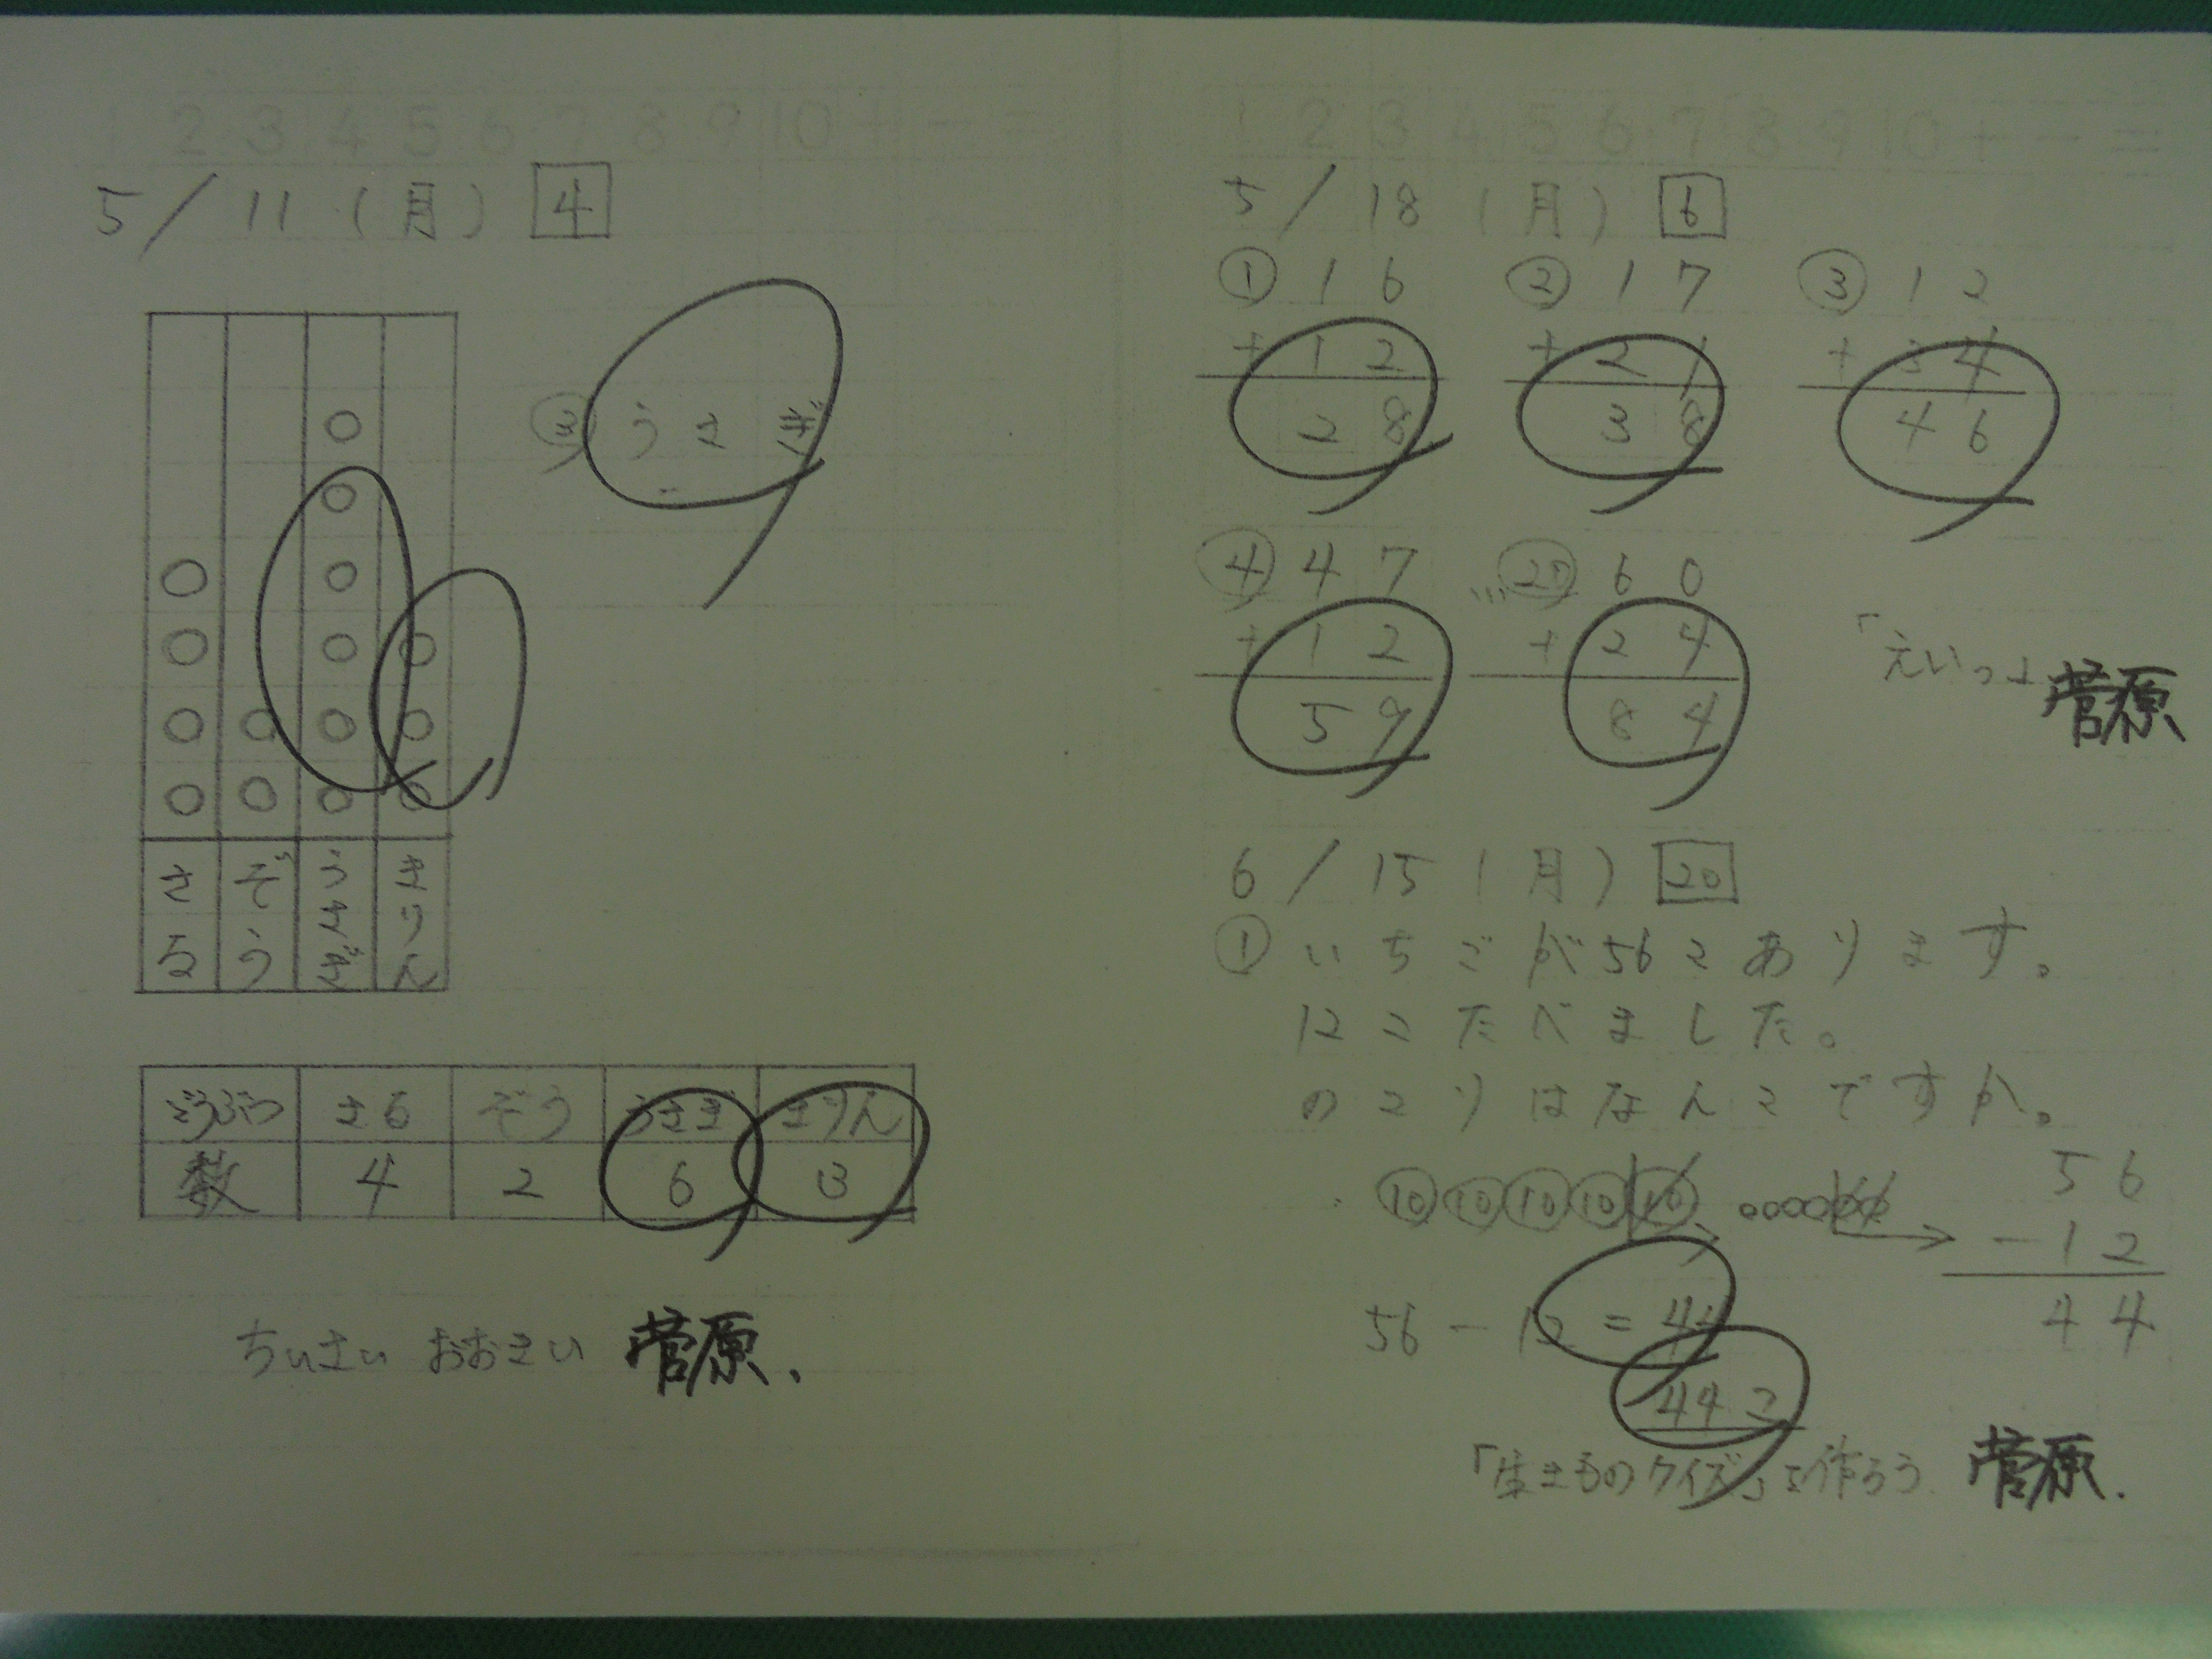 1 2 3 4 5 6 7 8 9 10 + - =
5/11(月) 4
③ うさぎ
さる ぞう うさぎ きりん
どうぶつ さる ぞう うさぎ きりん
数 4 2 6 3
ちいさい おおきい 菅原.
1 2 3 4 5 6 7 8 9 10 + - =
5/18(月) 6
① 16 ② 17 ③ 12
+12 +21 +34
28 38 46
④ 47 … ㉗ 60
+12 +24
59 84
「えいっ」 菅原
6/15(月) 20
① いちごが56こあります。
12こたべました。
のこりはなんこですか。
10 10 10 10 10
56
-12
44
56-12=44
44こ
「生きものクイズ」を作ろう 菅原.